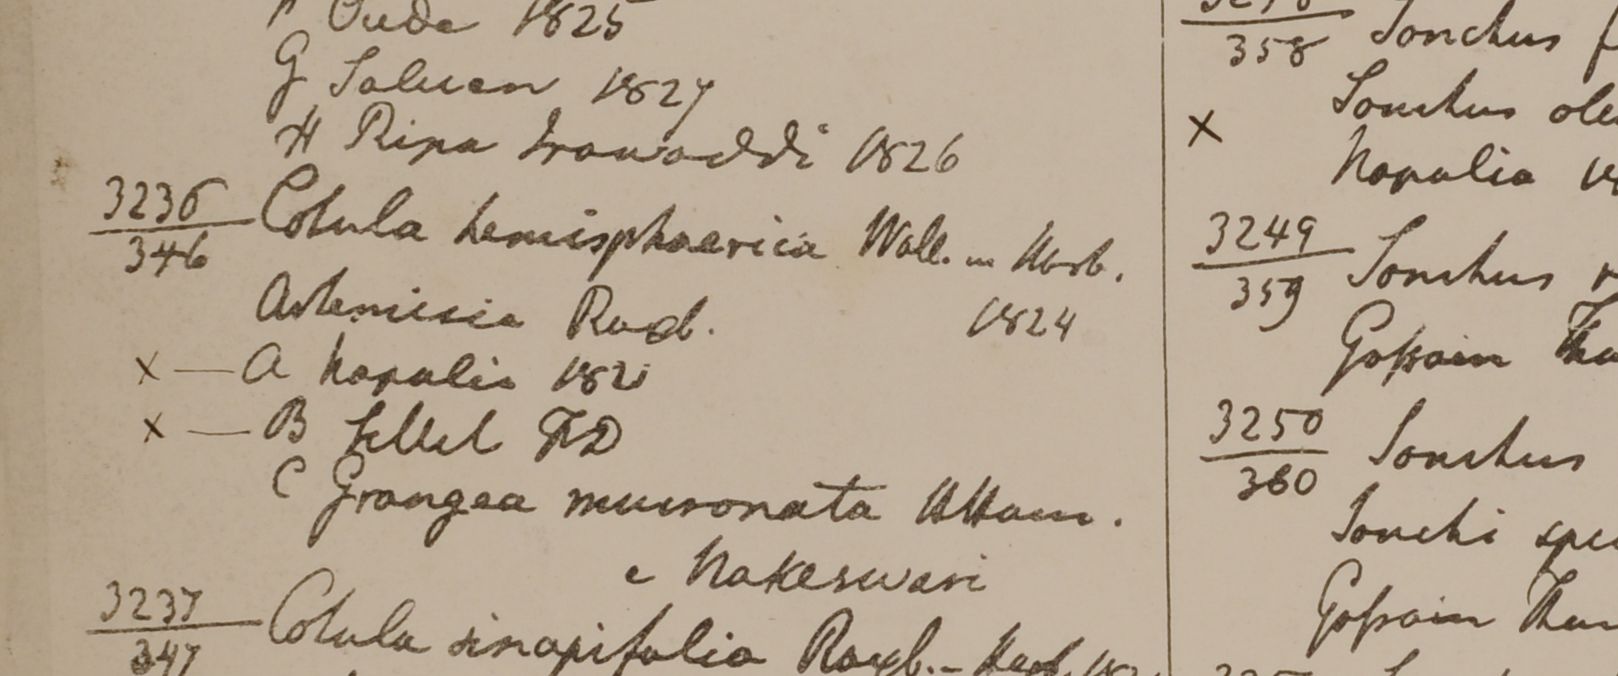 Oude 1825
G Saluen 1827
H Ripa Irawaddi 1826
3236
346
Cotula hemisphaerica Wall. in Herb.
Artemisia Roxb. 1824
x — A Napalia 1821
x — B Sillet FD
C Grangea mucronata HHam.
e Nakeswari
3237
347
Cotula sinapifolia Roxb. - Herb.
358
Sonchus
Sonchus ole
x
Napalia
3249
359
Sonchus
Gossain Tha
3250
360
Sonchus
Sonchi spe
Gossain Than